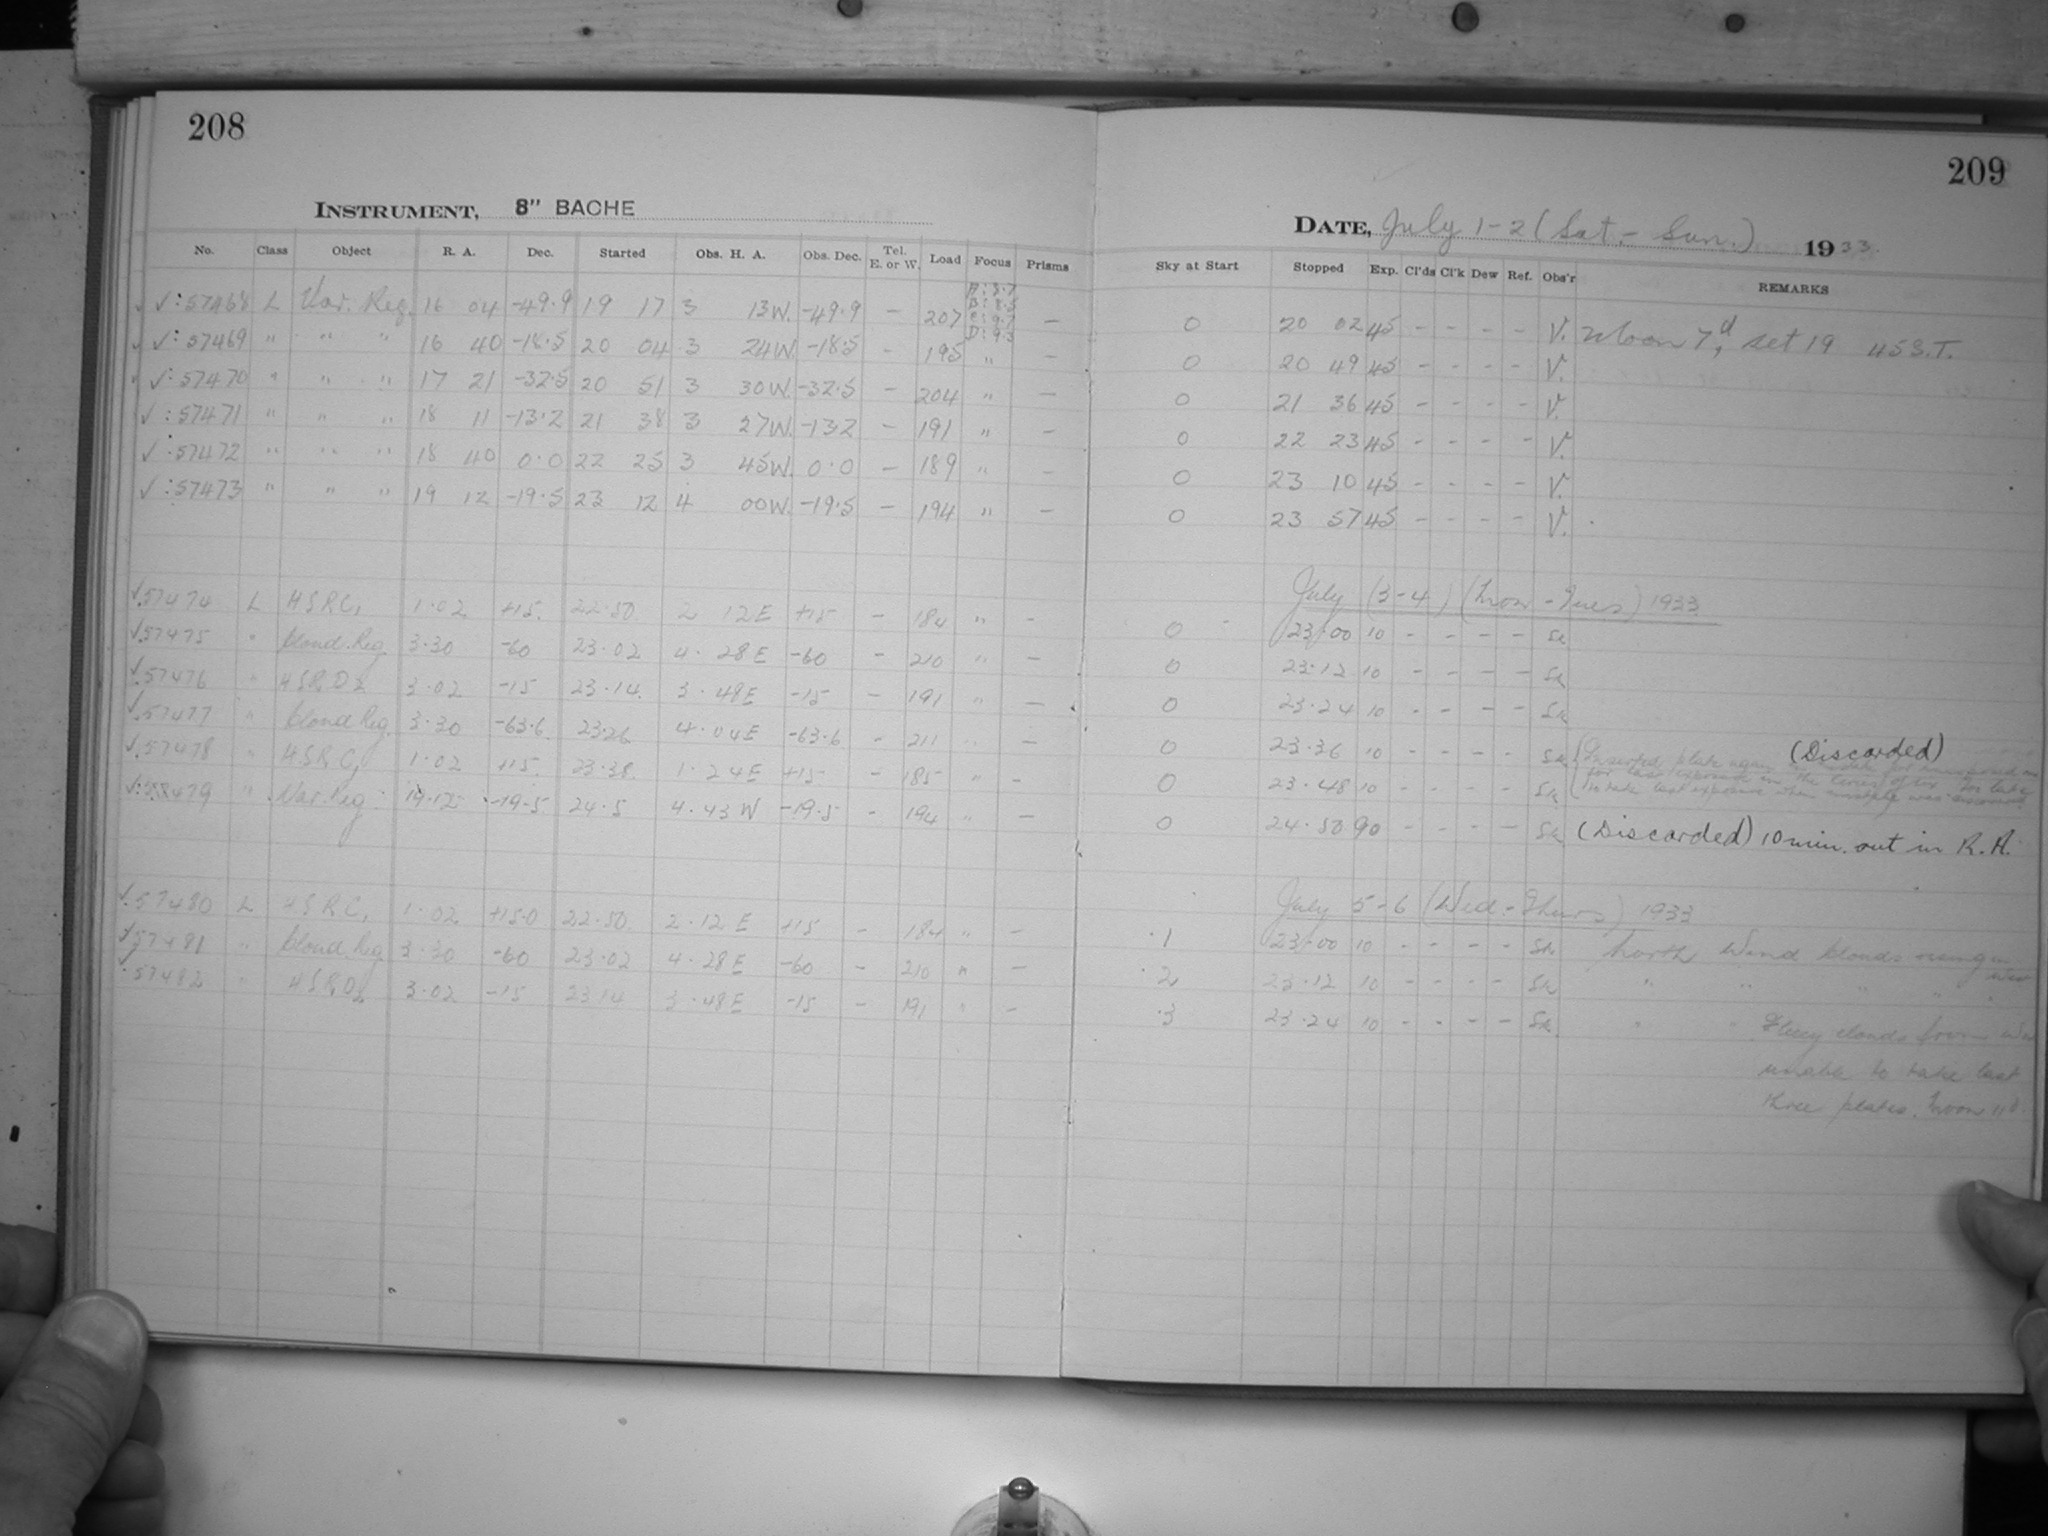 208
209
INSTRUMENT, 8" BACHE
DATE, July 1-2 (Sat. - Sun.) 1933.
No. Class Object R. A. Dec. Started Obs. H. A. Obs. Dec. Tel. E. or W. Load Focus Prisms Sky at Start Stopped Exp. Cl'ds Cl'k Dew Ref. Obs'r REMARKS
A: 8.7
B: 8.5
C: 9.7
D: 9.3
√: 57468 L Var. Reg. 16 04 -49.9 19 17 3 13W. -49.9 – 207 – 0 20 02 45 - - - - V. Moon 7d, set 19 45 S.T.
√: 57469 " " " 16 40 -18.5 20 04 3 24W -18.5 - 195 " – 0 20 49 45 - - - - V.
√: 57470 " " " 17 21 -32.5 20 51 3 30W. -32.5 – 204 " – 0 21 36 45 - - - - V.
√: 57471 " " " 18 11 -13.2 21 38 3 27W. -13.2 – 191 " – 0 22 23 45 - - - - V.
√: 57472 " " " 18 40 0.0 22 25 3 45W. 0.0 – 189 " – 0 23 10 45 - - - - V.
√: 57473 " " " 19 12 -19.5 23 12 4 00W. -19.5 – 194 " – 0 23 57 45 - - - - V.
July (3-4) (Mon - Tues) 1933
√.57474 L HSRC, 1.02 +15. 22.50 2 12E +15 - 184 " - 0 23.00 10 - - - - Sk
√.57475 " Cloud. Reg. 3.30 -60 23.02 4. 28E -60 - 210 " – 0 23.12 10 - - - - Sk
√.57476 " HSRD2 3.02 -15 23.14. 3. 48E -15 – 191 " – 0 23.24 10 - - - - Sk
√.57477 " Cloud Reg. 3.30 -63.6. 23.26 4.04E -63.6 - 211 " – 0 23.36 10 - - - - Sk (Discarded)
Inserted plate again
for last exposure in the
to take last exposure when mistake was
√.57478 " HSRC, 1.02 +15. 23.38. 1.24E +15 – 185 " – 0 23.48 10 - - - - Sk
√:57479 " Var. Reg. 19.12 -19.5 24.5 4.43 W -19.5 - 194 " – 0 24.50 90 - - - – Sk (Discarded) 10 min. out in R.A.
July 5-6 (Wed - Thurs) 1933
√.57480 L HSRC, 1.02 +15.0 22.50. 2.12 E +15 – 184 " – .1 23.00 10 - - - - Sk North Wind Clouds rising in west
√57481 " Cloud. Reg 3.30 -60 23.02 4.28E -60 – 210 " – .2 23.12 10 - - - - Sk " " " " "
√.57482 " HSRD2 3.02 -15 23.14 3.48E -15 – 191 " – .3 23.24 10 - - - - Sk. " " Fleecy clouds from
unable to take last
three plates. Moon 11d.